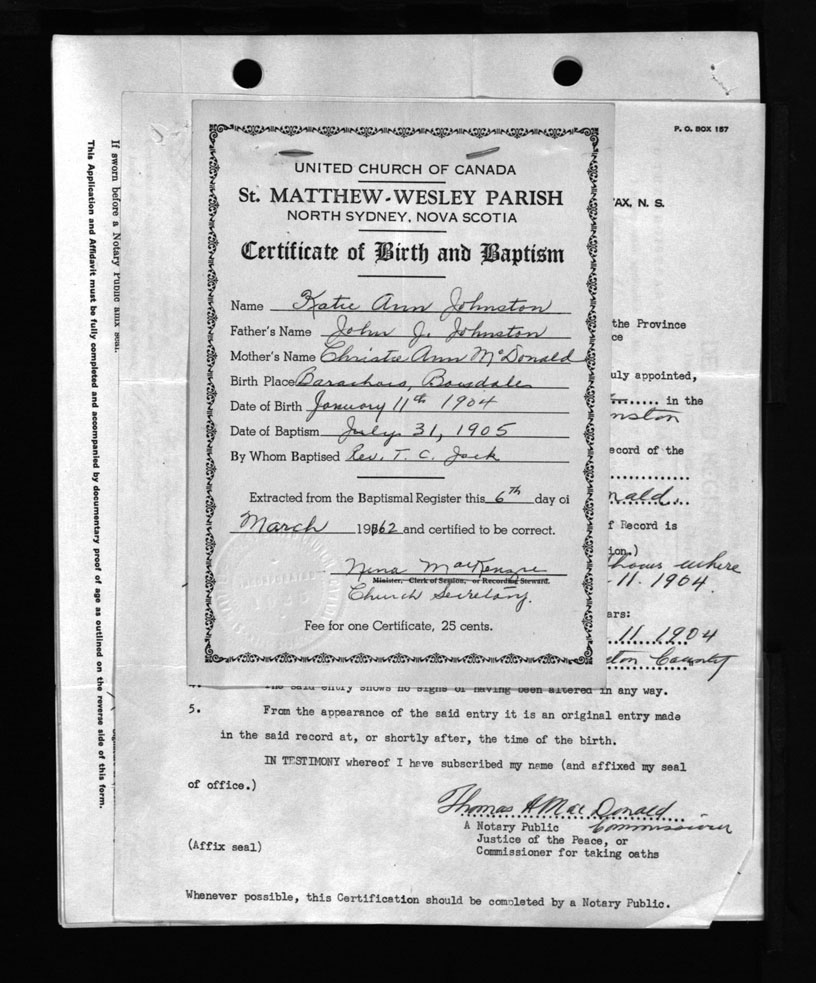 P. O. BOX 157
UNITED CHURCH OF CANADA
St. MATTHEW-WESLEY PARISH
NORTH SYDNEY, NOVA SCOTIA
Certificate of Birth and Baptism
Name Katie Ann Johnston
Father's Name John J. Johnston
Mother's Name Christie Ann McDonald
Birth Place Barachois, Boisdale
Date of Birth January 11th 1904
Date of Baptism July 31, 1905
By Whom Baptised Rev. T. C. Jack
Extracted from the Baptismal Register this 6th day of
March 1962 and certified to be correct.
Nina MacKenzie
Minister, Clerk of Session, or Recording Steward.
Church Secretary.
Fee for one Certificate, 25 cents.
FAX, N. S.
the Province
ce
uly appointed,
in the
nston
ecord of the
nald.
f Record is
ion.)
hows where
-11. 1904.
ars:
11 1904
ton County
4. The said entry shows no signs of having been altered in any way.
5. From the appearance of the said entry it is an original entry made
in the said record at, or shortly after, the time of the birth.
IN TESTIMONY whereof I have subscribed my name (and affixed my seal
of office.)
Thomas A MacDonald
A Notary Public Commissioner
Justice of the Peace, or
Commissioner for taking oaths
(Affix seal)
Whenever possible, this Certification should be completed by a Notary Public.
If sworn before a Notary Public affix seal.
This Application and Affidavit must be fully completed and accompanied by documentary proof of age as outlined on the reverse side of this form.